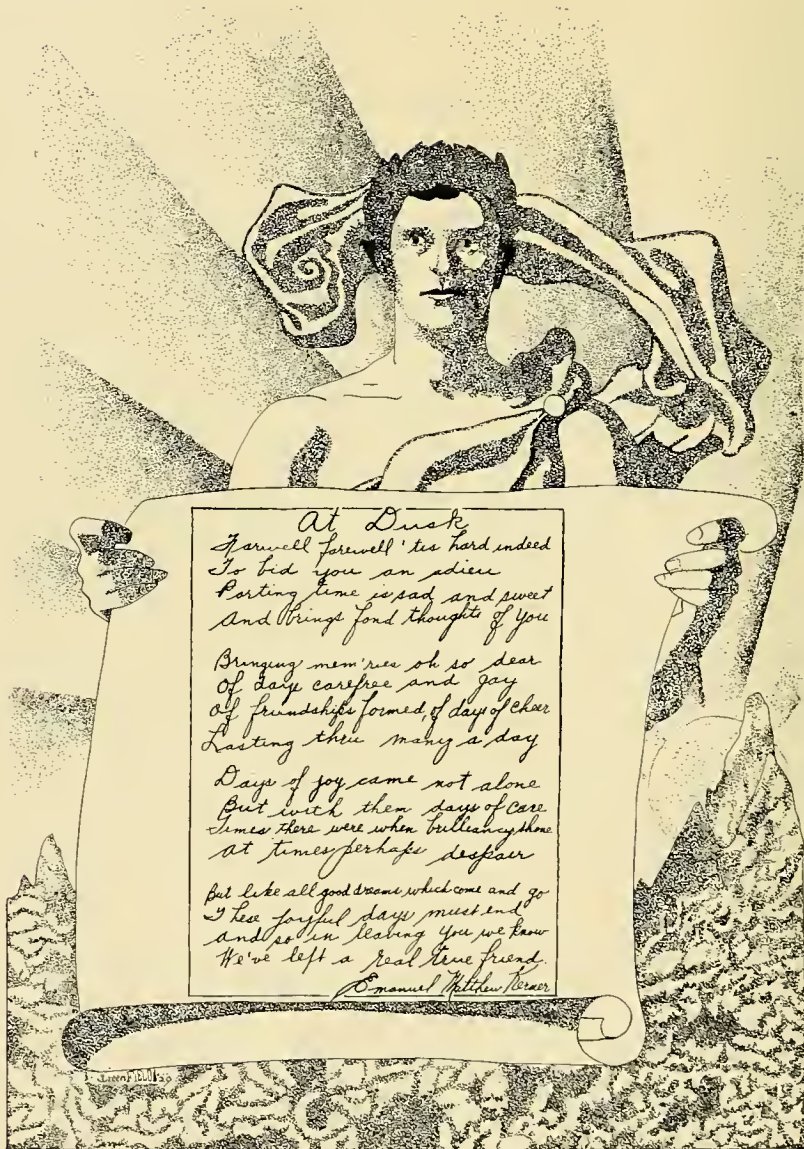 At Dusk
Farwell farewell 'tis hard indeed
To bid you an adieu
Parting time is sad and sweet
And brings fond thoughts of you
Bringing mem'ries oh so dear
Of days carefree and gay
Of friendships formed, of days of cheer
Lasting thru many a day
Days of joy came not alone
But with them days of care
Times there were when brilliancy shone
At times perhaps despair
But like all good dreams which come and go
These joyful days must end
And so in leaving you we know
We've left a real true friend.
Emanuel Matthew Kerner